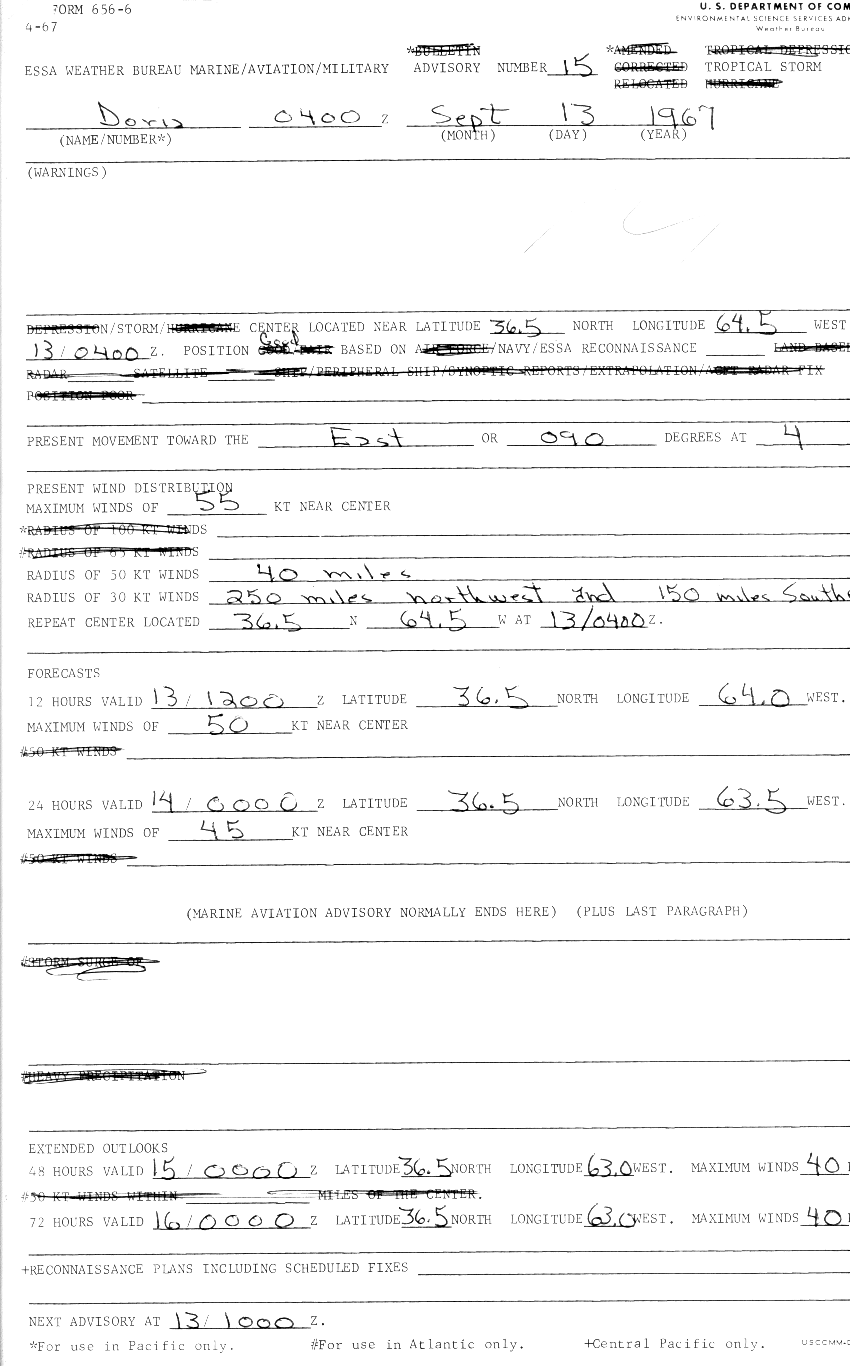 FORM 656-6
4-67
U. S. DEPARTMENT OF COM
ENVIRONMENTAL SCIENCE SERVICES AD
Weather Bureau
*BULLETIN *AMENDED TROPICAL DEPRESSIO
ESSA WEATHER BUREAU MARINE/AVIATION/MILITARY ADVISORY NUMBER 15 CORRECTED TROPICAL STORM
RELOCATED HURRICANE
Doris 0400 Z Sept 13 1967
(NAME/NUMBER*) (MONTH) (DAY) (YEAR)
(WARNINGS)
DEPRESSION/STORM/HURRICANE CENTER LOCATED NEAR LATITUDE 36.5 NORTH LONGITUDE 64.5 WEST
13/0400 Z. POSITION Good FAIR BASED ON AIR FORCE/NAVY/ESSA RECONNAISSANCE LAND BASE
RADAR SATELLITE SHIP/PERIPHERAL SHIP/SYNOPTIC REPORTS/EXTRAPOLATION/ACFT RADAR FIX
POSITION POOR
PRESENT MOVEMENT TOWARD THE East OR 090 DEGREES AT 4
PRESENT WIND DISTRIBUTION
MAXIMUM WINDS OF 55 KT NEAR CENTER
*RADIUS OF 100 KT WINDS
#RADIUS OF 65 KT WINDS
RADIUS OF 50 KT WINDS 40 miles
RADIUS OF 30 KT WINDS 250 miles northwest and 150 miles Souths
REPEAT CENTER LOCATED 36.5 N 64.5 W AT 13/0400 Z.
FORECASTS
12 HOURS VALID 13/1200 Z LATITUDE 36.5 NORTH LONGITUDE 64.0 WEST.
MAXIMUM WINDS OF 50 KT NEAR CENTER
#50 KT WINDS
24 HOURS VALID 14/0000 Z LATITUDE 36.5 NORTH LONGITUDE 63.5 WEST.
MAXIMUM WINDS OF 45 KT NEAR CENTER
#50 KT WINDS
(MARINE AVIATION ADVISORY NORMALLY ENDS HERE) (PLUS LAST PARAGRAPH)
#STORM SURGE OF
#HEAVY PRECIPITATION
EXTENDED OUTLOOKS
48 HOURS VALID 15/0000 Z LATITUDE 36.5 NORTH LONGITUDE 63.0 WEST. MAXIMUM WINDS 40
#50 KT WINDS WITHIN MILES OF THE CENTER.
72 HOURS VALID 16/0000 Z LATITUDE 36.5 NORTH LONGITUDE 63.0 WEST. MAXIMUM WINDS 40
+RECONNAISSANCE PLANS INCLUDING SCHEDULED FIXES
NEXT ADVISORY AT 13/1000 Z.
*For use in Pacific only. #For use in Atlantic only. +Central Pacific only. USCOMM-D